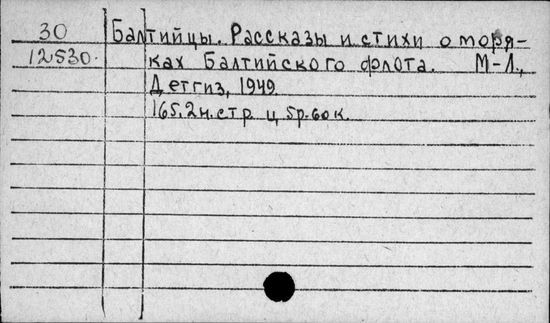 30 Балтийцы. Рассказы и стихи о моря-
12530. ках Балтийского флота. М-Л.,
Детгиз, 1949.
165,2н.стр ц 5р.60к.